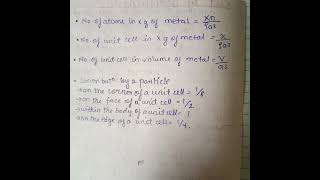 • No of atoms in x g of metal = xn/ρa³
• No of unit cell in x g of metal = x/ρa³
• No. of unit cell in volume of metal = V/a³
by a particle
→ on the corner of a unit cell = 1/8
→ on the face of a unit cell = 1/2
→ within the body of a unit cell = 1
→ on the edge of a unit cell = 1/4.